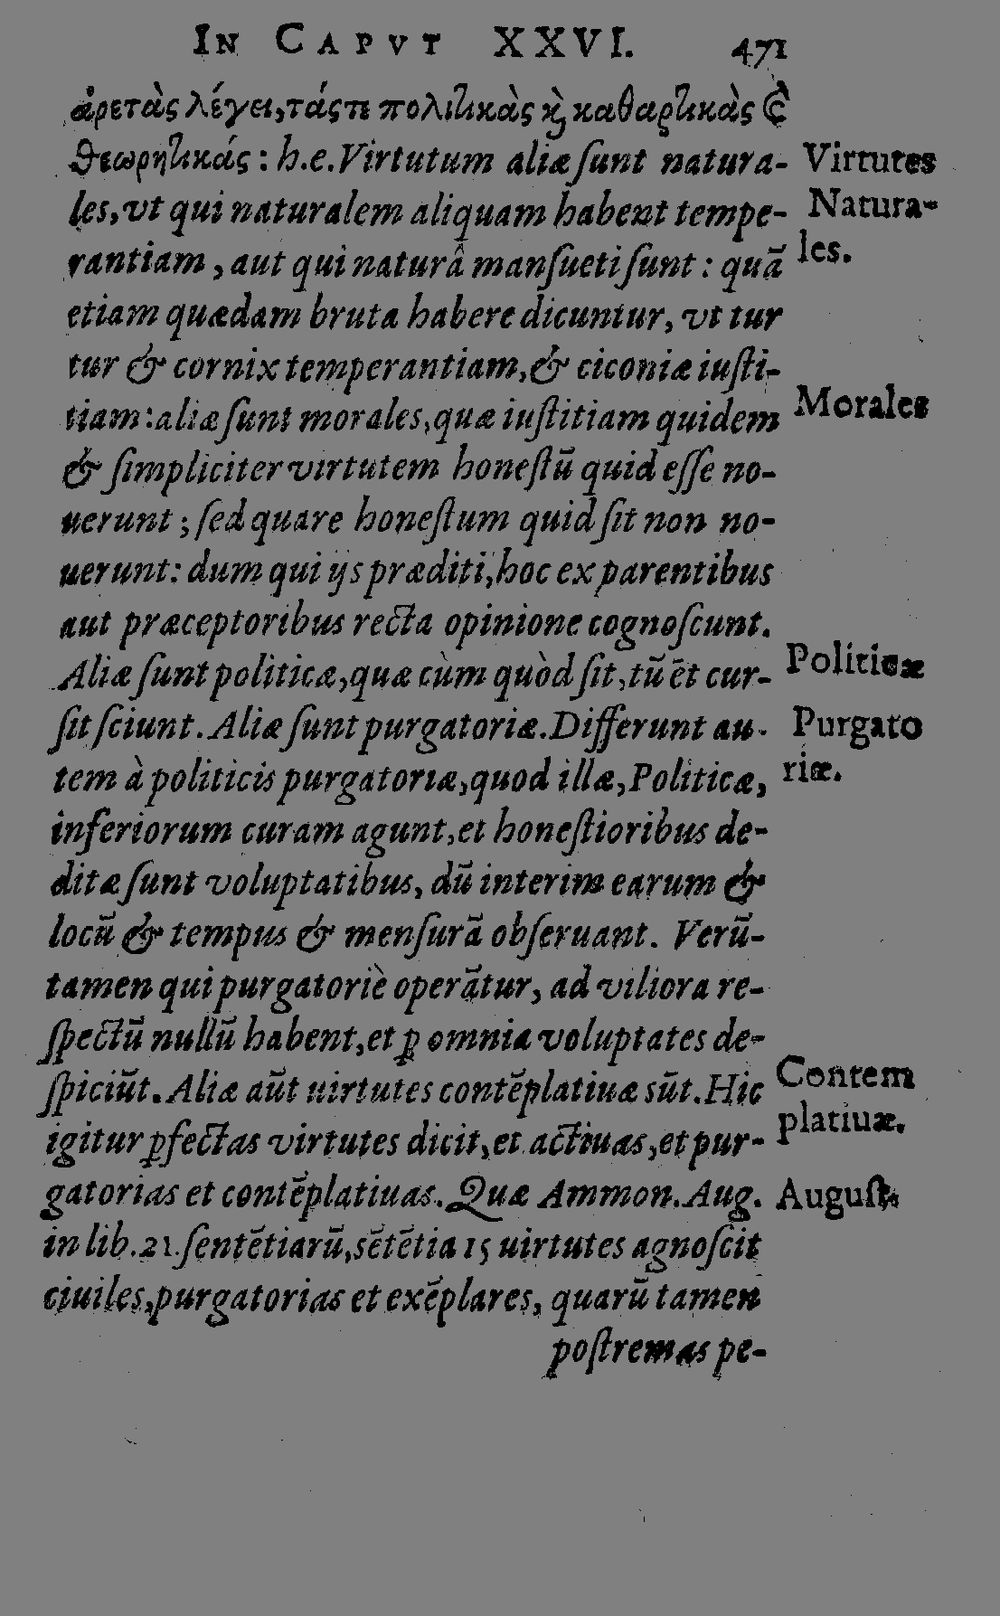 IN CAPVT XXVI. 471
ἀρετὰς λέγει, τάς τε πολιτικὰς κỳ καθαρτικὰς ϗ̀
θεωρητικάς: h.e. Virtutum aliæ ſunt natura-
les, vt qui naturalem aliquam habent tempe-
rantiam, aut qui naturâ manſueti ſunt: quā
etiam quædam bruta habere dicuntur, vt tur
tur & cornix temperantiam, & ciconiæ iuſti-
tiam: aliæ ſunt morales, quæ iuſtitiam quidem
& ſimpliciter virtutem honeſtū quid eſſe no-
uerunt; ſed quare honeſtum quid ſit non no-
uerunt: dum qui ijs præditi, hoc ex parentibus
aut præceptoribus recta opinione cognoſcunt.
Aliæ ſunt politicæ, quæ cùm quòd ſit, tū ēt cur-
ſit ſciunt. Aliæ ſunt purgatoriæ. Differunt au-
tem à politicis purgatoriæ, quod illæ, Politicæ,
inferiorum curam agunt, et honeſtioribus de-
ditæ ſunt voluptatibus, dū interim earum &
locū & tempus & menſurā obſeruant. Verū-
tamen qui purgatoriè operātur, ad viliora re-
ſpectū nullū habent, et ꝑ omnia voluptates de-
ſpiciūt. Aliæ aūt uirtutes contēplatiuæ sūt. Hic
igitur ꝑfectas virtutes dicit, et actiuas, et pur-
gatorias et contēplatiuas. Quæ Ammon. Aug.
in lib. 21. ſentētiarū, sētētia 15 uirtutes agnoſcit
ciuiles, purgatorias et exēplares, quarū tamen
poſtremas pe-
Virtutes
Natura-
les.
Morales
Politicæ
Purgato
riæ.
Contem
platiuæ.
Auguſt.